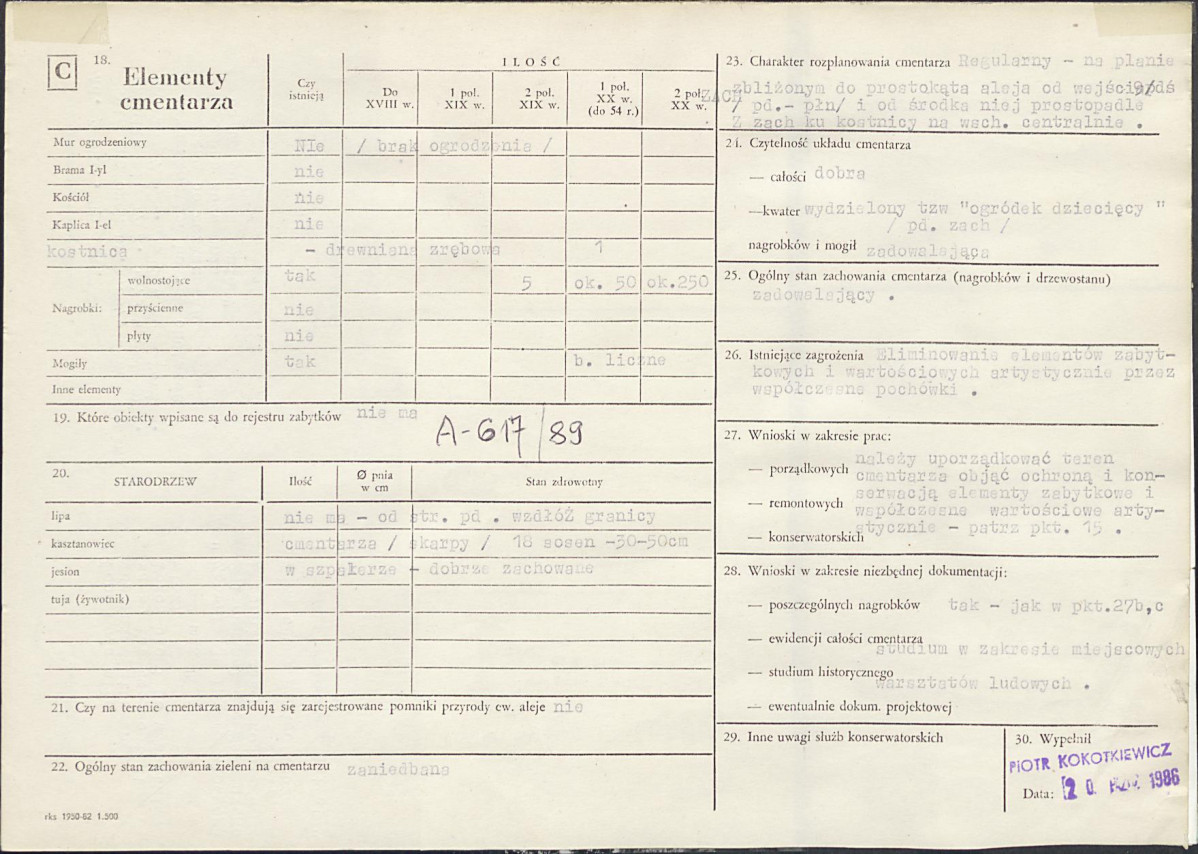 C
18. Elementy cmentarza
Czy istnieją
ILOŚĆ
Do XVIII w.
1 poł. XIX w.
2 poł. XIX w.
1 poł. XX w. (do 54 r.)
2 poł. XX w.
Mur ogrodzeniowy NIe / brak ogrodzenia /
Brama I-yl nie
Kościół nie
Kaplica I-el nie
kostnica - drewniana zrębowa 1
Nagrobki: wolnostojące tak 5 ok. 50 ok.250
przyścienne nie
płyty nie
Mogiły tak b. liczne
Inne elementy
19. Które obiekty wpisane są do rejestru zabytków nie ma
A-617/89
20. STARODRZEW Ilość Ø pnia w cm Stan zdrowotny
lipa nie ma - od str. pd . wzdłóż granicy
kasztanowiec cmentarza / skarpy / 18 sosen -30-50cm
jesion w szpalerze - dobrze zachowane
tuja (żywotnik)
21. Czy na terenie cmentarza znajdują się zarejestrowane pomniki przyrody ew. aleje nie
22. Ogólny stan zachowania zieleni na cmentarzu zaniedbana
rks 1950-82 1.500
23. Charakter rozplanowania cmentarza Regularny - na planie
zbliżonym do prostokąta aleja od wejścia
ZACH
/ pd.- płn/ i od środka niej prostopadle
Z zach ku kostnicy na wsch. centralnie .
24. Czytelność układu cmentarza
— całości dobra
—kwater wydzielony tzw "ogródek dziecięcy "
/ pd. zach /
nagrobków i mogił zadowalająca
25. Ogólny stan zachowania cmentarza (nagrobków i drzewostanu)
zadowalający .
26. Istniejące zagrożenia Eliminowanie elementów zabyt-
kowych i wartościowych artystycznie przez
współczesne pochówki .
27. Wnioski w zakresie prac:
należy uporządkować teren
— porządkowych cmentarza objąć ochroną i kon-
serwacją elementy zabytkowe i
— remontowych współczesne wartościowe arty-
stycznie - patrz pkt. 15 .
— konserwatorskich
28. Wnioski w zakresie niezbędnej dokumentacji:
— poszczególnych nagrobków tak - jak w pkt.27b,c
— ewidencji całości cmentarza
studium w zakresie miejscowych
— studium historycznego
warsztatów ludowych .
— ewentualnie dokum. projektowej
29. Inne uwagi służb konserwatorskich
30. Wypełnił
PIOTR KOKOTKIEWICZ
Data: 20. PAŹ. 1986